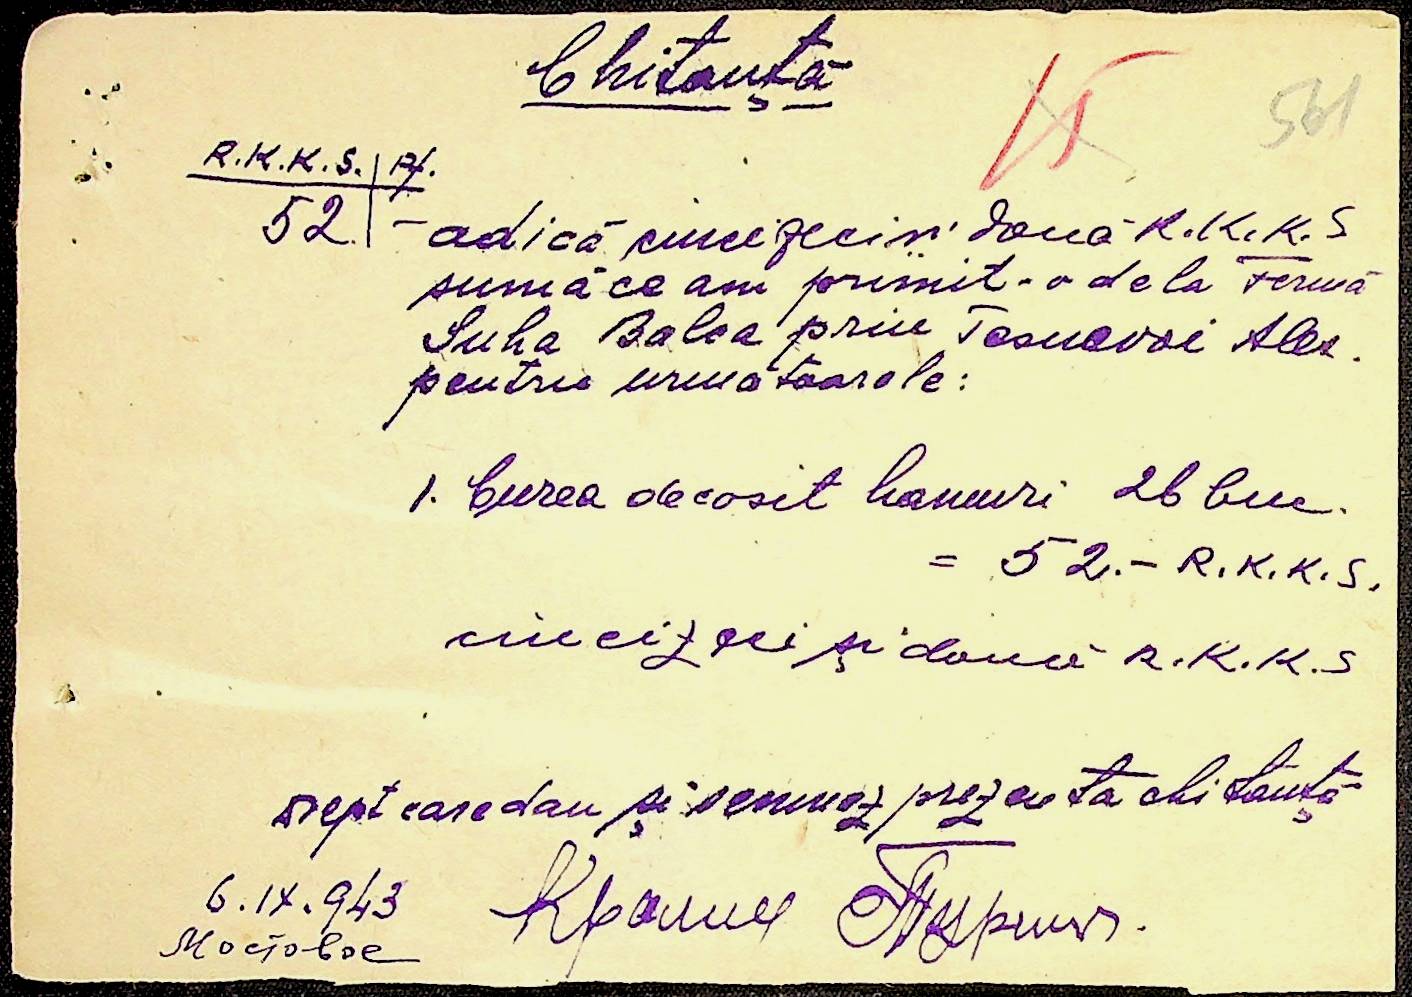 Chitanţă
561
R.K.K.S. | Pf.
52. | – adică cincizeci şi două R.K.K.S
suma ce am primit-o de la Fermă
Suha Balca prin Alex.
pentru urmatoarele:
1. Curea de cosit hamuri 26 buc.
= 52.– R.K.K.S.
cincizeci şi două R.K.K.S
Drept care dau şi semnez prezenta chitanţă
6.IX.943
Мостовое